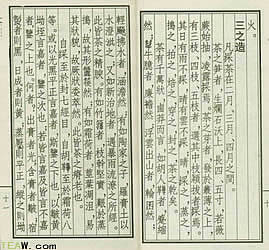 火。
三之造
凡採茶在二月、三月、四月之間。
茶之笋者,生爛石沃土,長四、五寸,若薇
蕨始抽,凌露採焉。茶之芽者,發於叢薄之上,
有三枝、四枝、五枝者,選其中枝穎拔者採焉。
其日有雨不採,晴有雲不採,晴,採之、蒸之、
搗之、拍之、焙之、穿之、封之、茶之乾矣。
茶有千萬狀,鹵莽而言,如胡人靴者,蹙縮
然;犎牛臆者,廉襜然;浮雲出山者,輪囷然;
輕飈拂水者,涵澹然。有如陶家之子,羅膏土以
水澄泚之。又如新治地者,遇暴雨流潦之所經。
此皆茶之精腴。有如竹籜者,枝幹堅實,艱於蒸
搗,故其形然。有如霜荷者,莖葉凋沮,易
其狀貌,故厥狀委萃然。此皆茶之瘠老者也。
自採至於封七經目,自胡靴至於霜荷八
等。或以光黑平正言嘉者,斯鑒之下也;以皺黃
坳垤言佳者,鑒之次也;若皆言嘉及皆言不嘉
者,鑒之上也。何者?出膏者光,含膏者皺;宿
製者則黑,日成者則黃;蒸壓則平正,縱之則坳
TEAW.com